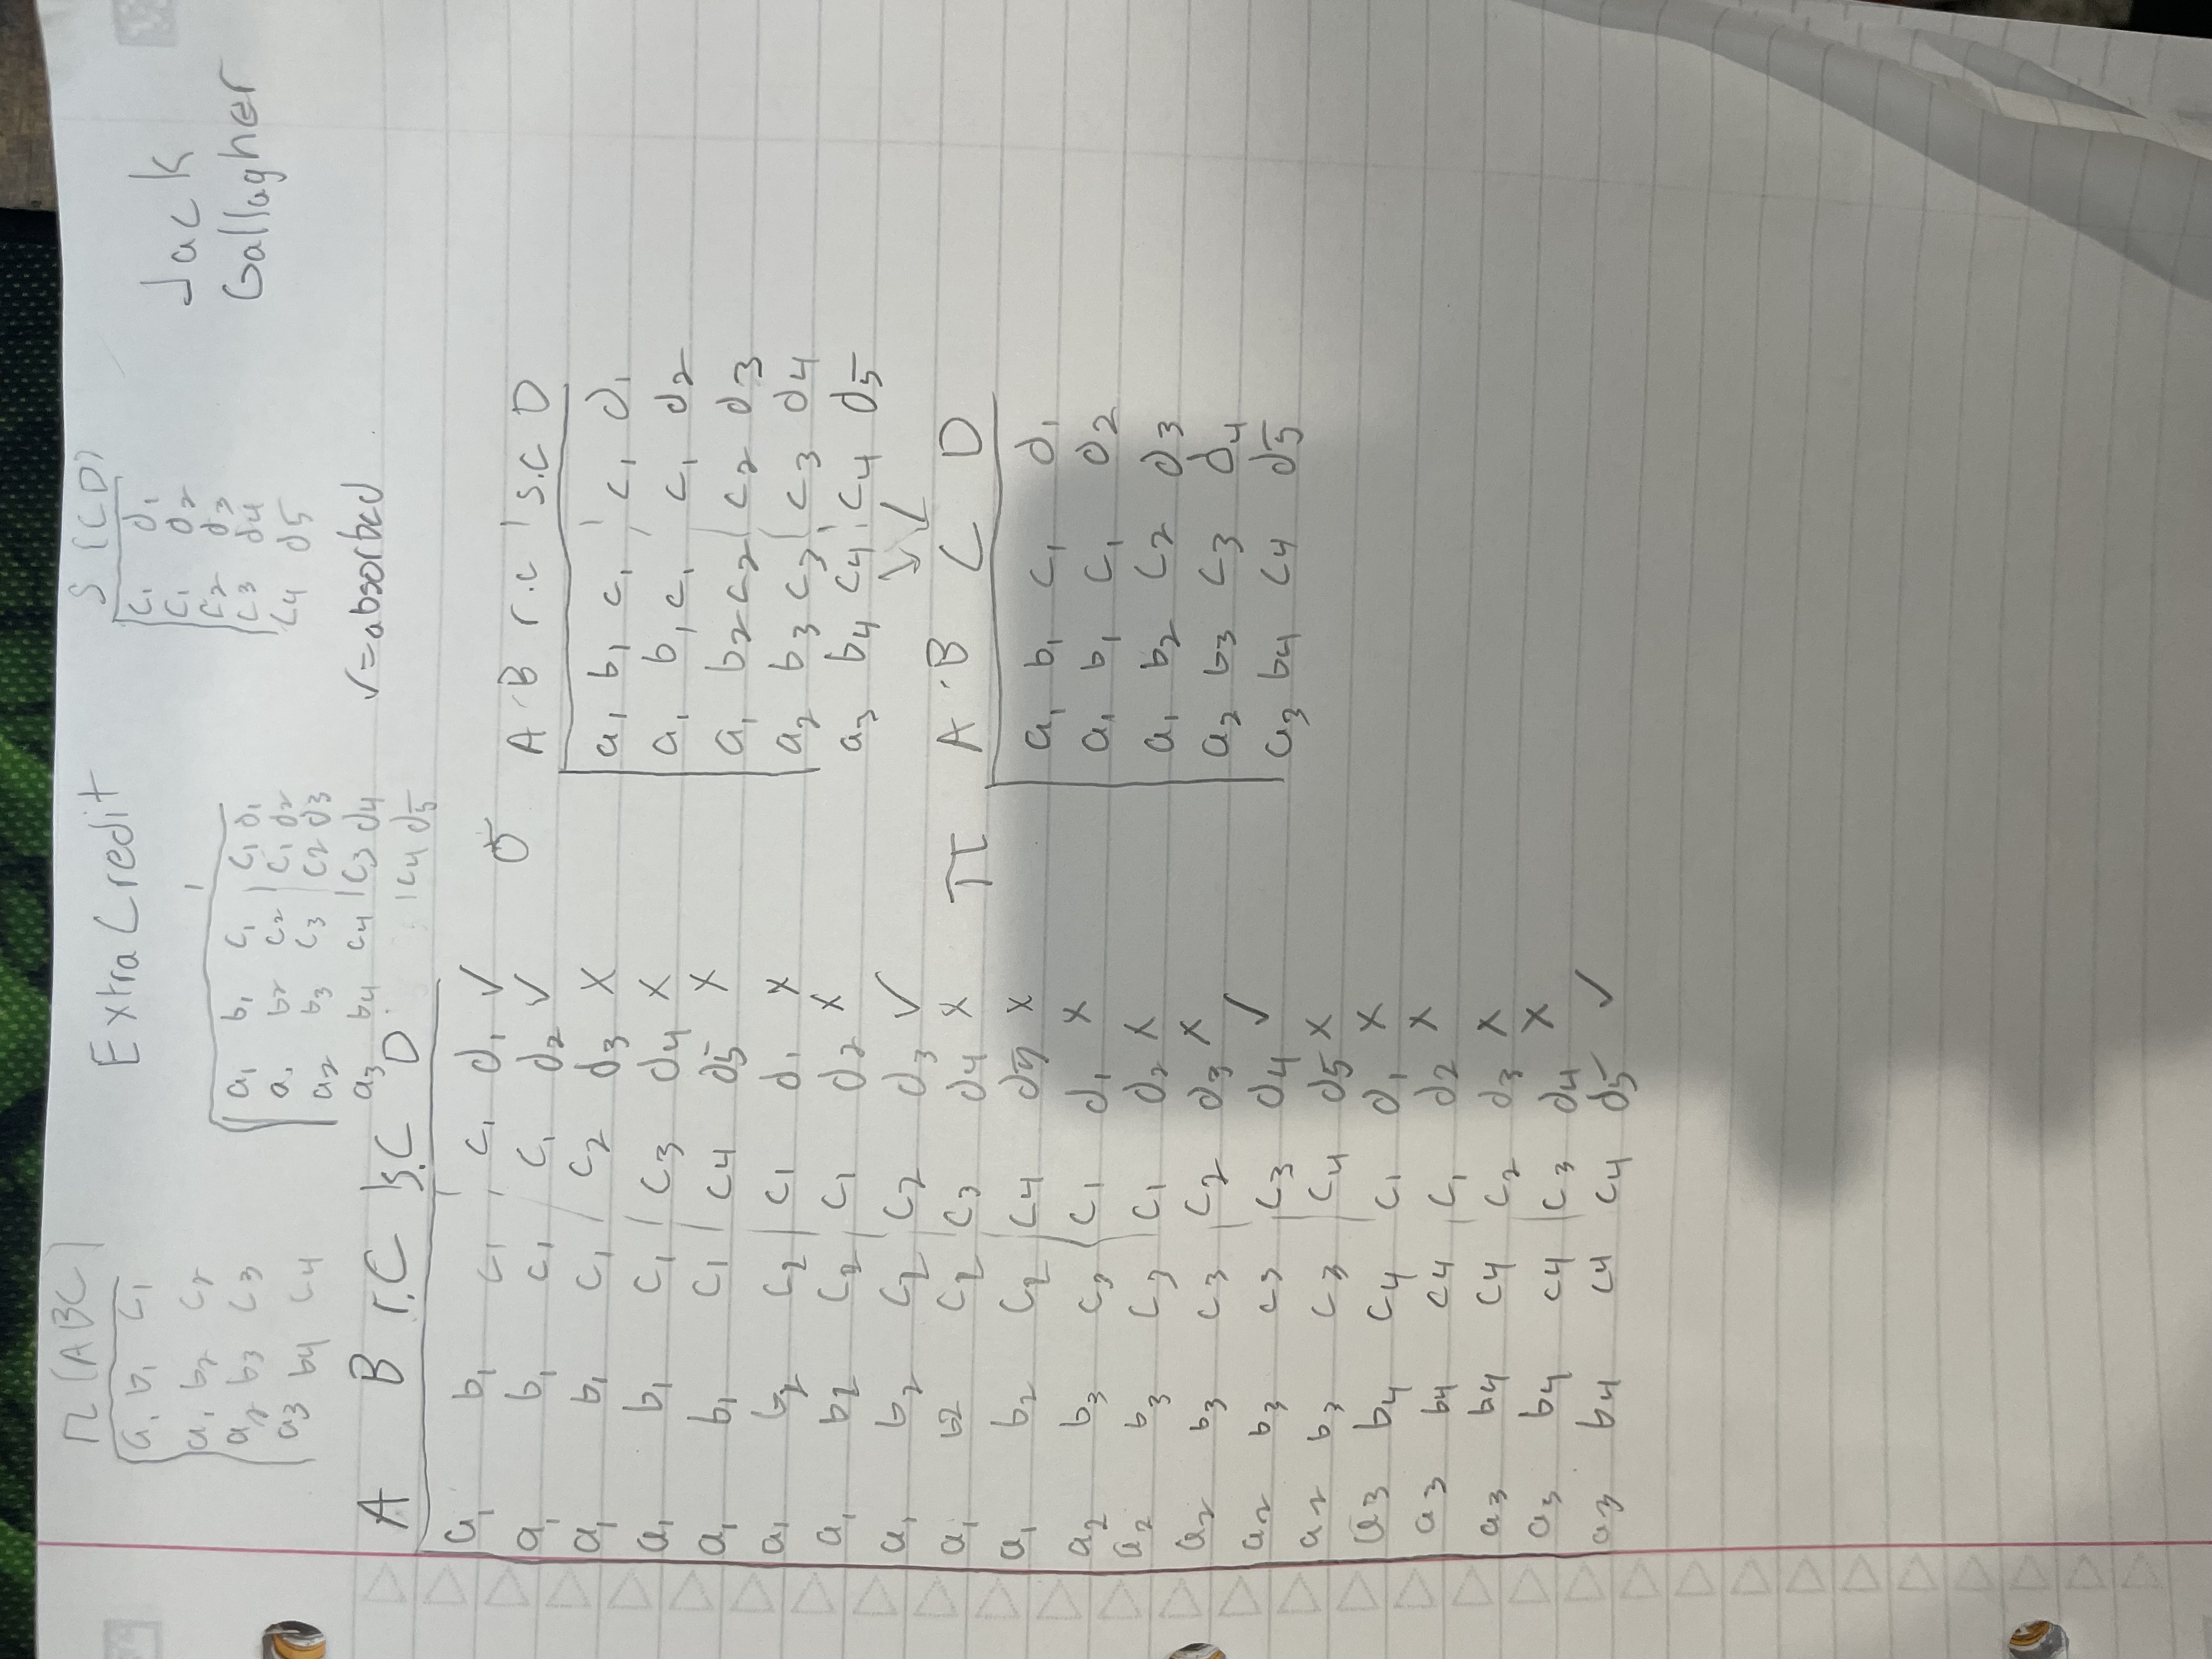 r (ABC)
a1 b1 c1
a1 b2 c2
a2 b3 c3
a3 b4 c4
Extra Credit
S (CD)
c1 d1
c1 d2
c2 d3
c3 d4
c4 d5
Jack
Gallagher
a1 b1 c1 | c1 d1
a1 b2 c2 | c1 d2
a2 b3 c3 | c2 d3
a3 b4 c4 | c3 d4
| c4 d5
✓=absorbed
A B r.C s.C D
a1 b1 c1 | c1 d1 ✓
a1 b1 c1 | c1 d2 ✓
a1 b1 c1 | c2 d3 x
a1 b1 c1 | c3 d4 x
a1 b1 c1 | c4 d5 x
a1 b2 c2 | c1 d1 x
a1 b2 c2 | c1 d2 x
a1 b2 c2 | c2 d3 ✓
a1 b2 c2 | c3 d4 x
a1 b2 c2 | c4 d5 x
a2 b3 c3 | c1 d1 x
a2 b3 c3 | c1 d2 x
a2 b3 c3 | c2 d3 x
a2 b3 c3 | c3 d4 ✓
a2 b3 c3 | c4 d5 x
a3 b4 c4 c1 d1 x
a3 b4 c4 | c1 d2 x
a3 b4 c4 c2 d3 x
a3 b4 c4 | c3 d4 x
a3 b4 c4 c4 d5 ✓
σ
A B r.c | s.c D
a1 b1 c1 | c1 d1
a1 b1 c1 c1 d2
a1 b2 c2 | c2 d3
a2 b3 c3 | c3 d4
a3 b4 c4 | c4 d5
↓ ↓
π
A B C D
a1 b1 c1 d1
a1 b1 c1 d2
a1 b2 c2 d3
a2 b3 c3 d4
a3 b4 c4 d5